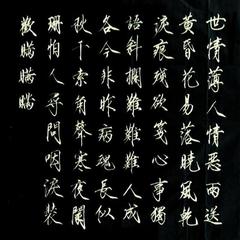 世情薄人情惡雨送
黄昏花易落曉風乾
淚痕殘欲箋心事獨
語斜欄難難難人成
各今非昨病魂長似
秋千索角聲寒夜闌
珊怕人尋問咽淚裝
歡瞞瞞瞞